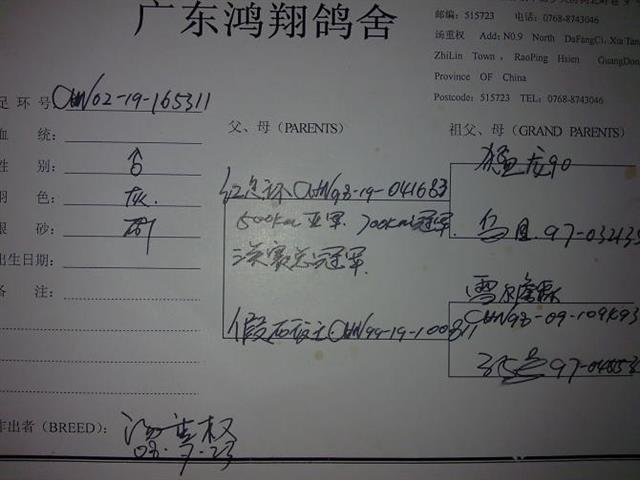 广东鸿翔鸽舍
邮编：515723 电话：0768-8743046
汤重权 Add: N0.9 North DaFangCi, XiaTan
ZhiLin Town, RaoPing Hsien GuangDon
Province OF China
Postcode: 515723 TEL: 0768-8743046
足环号 CHN02-19-165311
血 统：
性 别：♂
羽 色：灰
眼 砂：
出生日期：
备 注：
父、母（PARENTS）
红点环CHN98-19-041683
500km亚军.700km冠军.
决赛总冠军.
CHN99-19-100811
祖父、母（GRAND PARENTS）
龙90
97-032435
雪尔
CHN98-09-109493
作出者（BREED）：汤重权
03.7.23